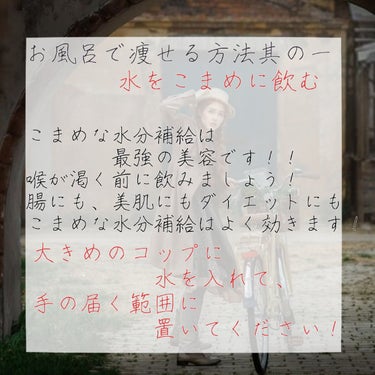 お風呂で痩せる方法其の一
水をこまめに飲む
こまめな水分補給は
最強の美容です！！
喉が渇く前に飲みましょう！
腸にも、美肌にもダイエットにも
こまめな水分補給はよく効きます！
大きめのコップに
水を入れて、
手の届く範囲に
置いてください！